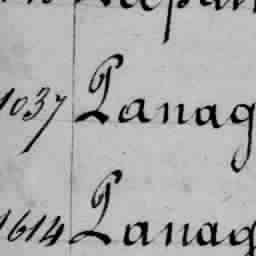 1037 Panag
1614 Panag